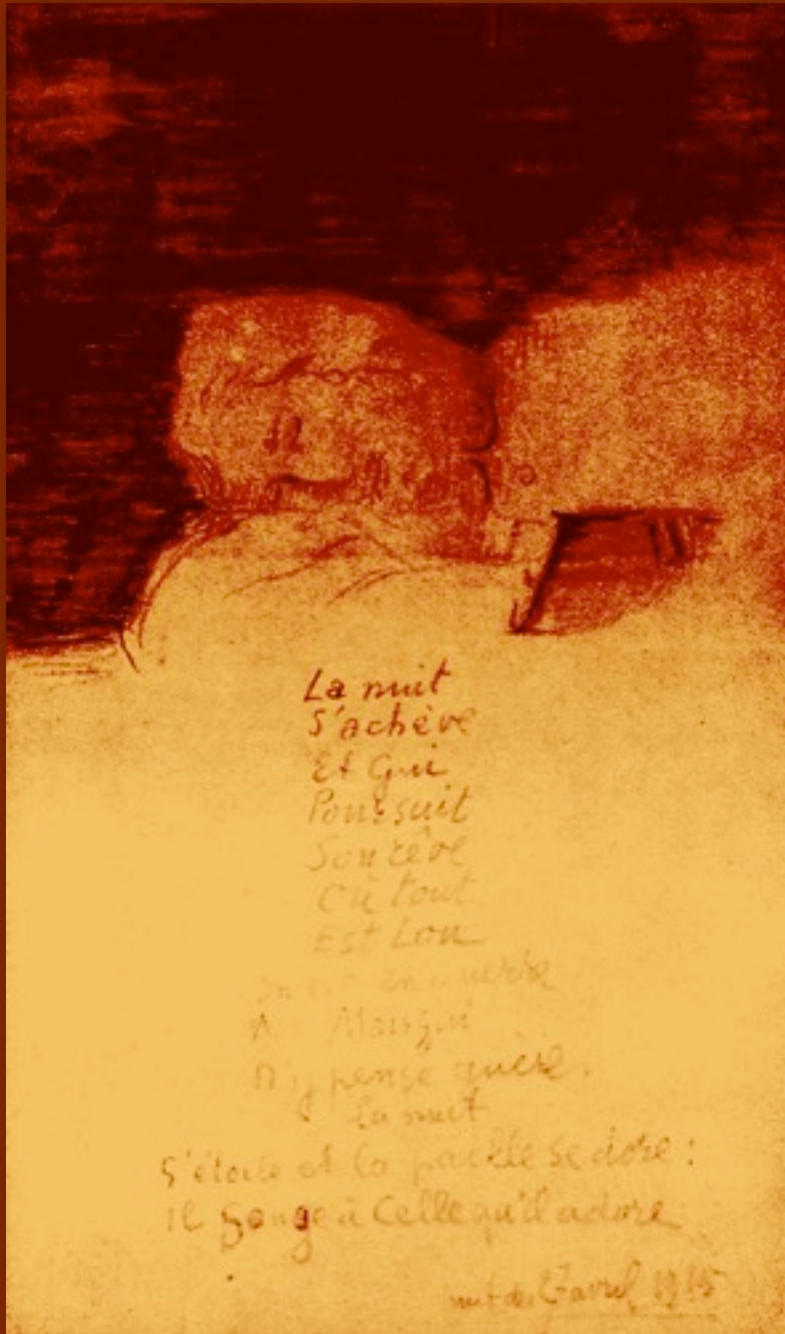 La nuit
S'achève
Et Gui
Poursuit
Son rêve
Où tout
Est Lou
On est en guerre
Mais Gui
N'y pense guère
La nuit
S'étoile et la paille se dore :
Il Songe à Celle qu'il adore
nuit du 27 avril 1915